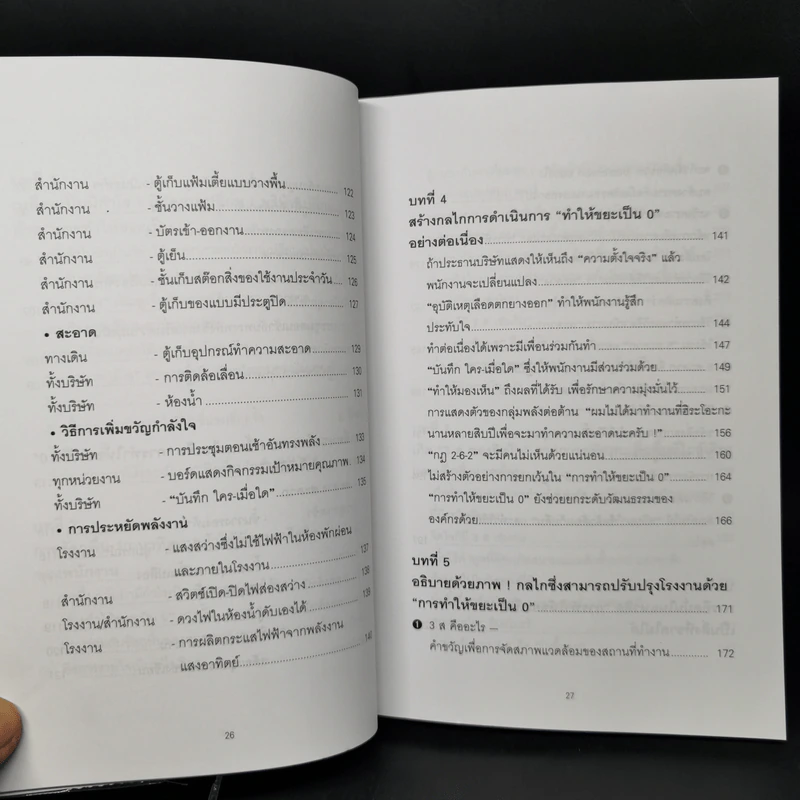 สำนักงาน - ตู้เก็บแฟ้มเตี้ยแบบวางพื้น 122
สำนักงาน - ชั้นวางแฟ้ม 123
สำนักงาน - บัตรเข้า-ออกงาน 124
สำนักงาน - ตู้เย็น 125
สำนักงาน - ชั้นเก็บสต๊อกสิ่งของใช้งานประจำวัน 126
สำนักงาน - ตู้เก็บของแบบมีประตูปิด 127
• สะอาด
ทางเดิน - ตู้เก็บอุปกรณ์ทำความสะอาด 129
ทั้งบริษัท - การติดล้อเลื่อน 130
ทั้งบริษัท - ห้องน้ำ 131
• วิธีการเพิ่มขวัญกำลังใจ
ทั้งบริษัท - การประชุมตอนเช้าอันทรงพลัง 133
ทุกหน่วยงาน - บอร์ดแสดงกิจกรรมเป้าหมายคุณภาพ 134
ทั้งบริษัท - “บันทึก ใคร-เมื่อใด” 135
• การประหยัดพลังงาน
โรงงาน - แสงสว่างซึ่งไม่ใช้ไฟฟ้าในห้องพักผ่อน
และภายในโรงงาน 137
สำนักงาน - สวิตช์เปิด-ปิดไฟส่องสว่าง 138
โรงงาน/สำนักงาน - ดวงไฟในห้องน้ำดับเองได้ 139
โรงงาน - การผลิตกระแสไฟฟ้าจากพลังงาน
แสงอาทิตย์ 140
26
บทที่ 4
สร้างกลไกการดำเนินการ “ทำให้ขยะเป็น 0”
อย่างต่อเนื่อง 141
ถ้าประธานบริษัทแสดงให้เห็นถึง “ความตั้งใจจริง” แล้ว
พนักงานจะเปลี่ยนแปลง 142
“อุบัติเหตุเลือดตกยางออก” ทำให้พนักงานรู้สึก
ประทับใจ 144
ทำต่อเนื่องได้เพราะมีเพื่อนร่วมกันทำ 147
“บันทึก ใคร-เมื่อใด” ซึ่งให้พนักงานมีส่วนร่วมด้วย 149
“ทำให้มองเห็น” ถึงผลที่ได้รับ เพื่อรักษาความมุ่งมั่นไว้ 151
การแสดงตัวของกลุ่มพลังต่อต้าน “ผมไม่ได้มาทำงานที่ฮิระโอะกะ
นานหลายสิบปีเพื่อจะมาทำความสะอาดนะครับ !” 156
“กฎ 2-6-2” จะมีคนไม่เห็นด้วยแน่นอน 160
ไม่สร้างตัวอย่างการยกเว้นใน “การทำให้ขยะเป็น 0” 164
“การทำให้ขยะเป็น 0” ยังช่วยยกระดับวัฒนธรรมของ
องค์กรด้วย 166
บทที่ 5
อธิบายด้วยภาพ ! กลไกซึ่งสามารถปรับปรุงโรงงานด้วย
“การทำให้ขยะเป็น 0” 171
❶ 3 ส คืออะไร —
คำขวัญเพื่อการจัดสภาพแวดล้อมของสถานที่ทำงาน 172
27